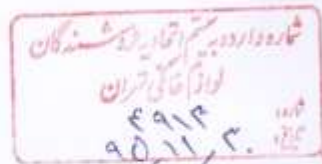 شماره وارده به سیستم اتحادیه فروشندگان
لوازم خانگی تهران
شماره: ۴۹۱۴
تاریخ: ۹۵٫۱۱٫۳۰